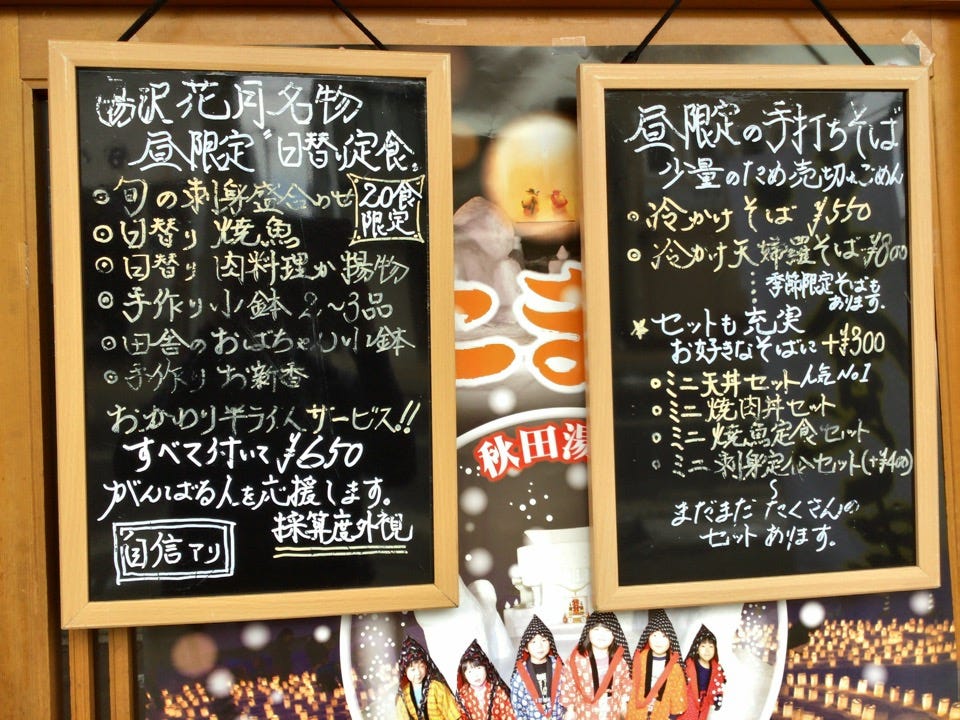 湯沢 花月名物
昼限定〝日替り定食〟
20食
限定
◎旬の刺身盛合わせ
◎日替り 焼魚
◎日替り 肉料理か揚物
◎手作り小鉢 2〜3品
◎田舎のおばちゃん小鉢
◎手作りお新香
おかわり半ライスサービス!!
すべて付いて ¥650
がんばる人を応援します。
採算度外視
自信アリ
昼限定の手打ちそば
少量のため売切れごめん
◎冷かけそば ¥550
◎冷かけ天婦羅そば ¥800
季節限定そばも
あります。
★セットも充実
お好きなそばに+¥300
○ミニ天丼セット 人気No1
○ミニ焼肉丼セット
○ミニ焼魚定食セット
○ミニ刺身定食セット(+¥400)
〜
まだまだたくさんの
セットあります。
秋田湯